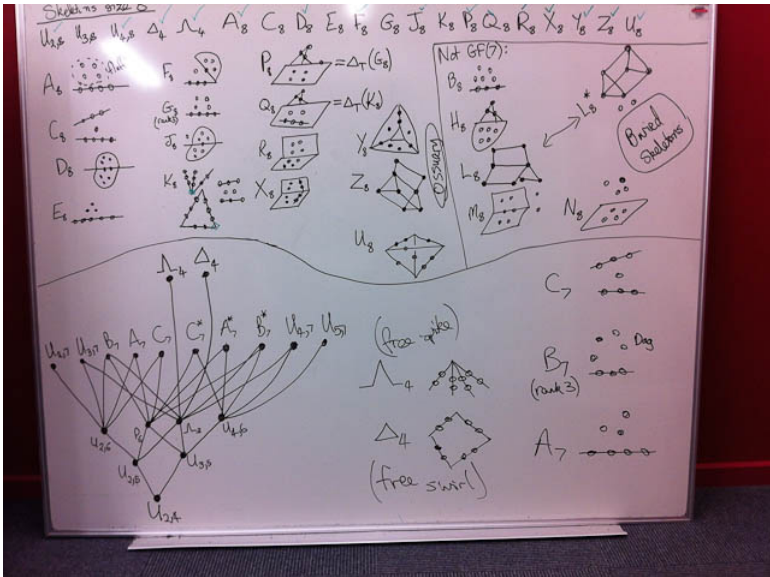 Skeletons size 8
U₂,₈ U₃,₈ U₄,₈ Δ₄ Λ₄ A₈ C₈ D₈ E₈ F₈ G₈ J₈ K₈ P₈ Q₈ R₈ X₈ Y₈ Z₈ U₈
A₈
C₈
D₈
E₈
F₈
G₈
(rank3)
J₈
K₈
P₈ = Δ_T(G₈)
Q₈ = Δ_T(K₈)
R₈
X₈
Y₈
Z₈
U₈
Ossuary
Not GF(7):
B₈
H₈
L₈
M₈
L₈*
Buried
Skeletons
N₈
Λ₄ Δ₄
U₂,₇ U₃,₇ B₇ A₇ C₇ C₇* A₇* B₇* U₄,₇ U₅,₇
U₂,₆ P₆ Λ₃ U₄,₆
U₂,₅ U₃,₅
U₂,₄
(free spike)
Λ₄
Δ₄
(free swirl)
C₇
B₇ Dog
(rank3)
A₇